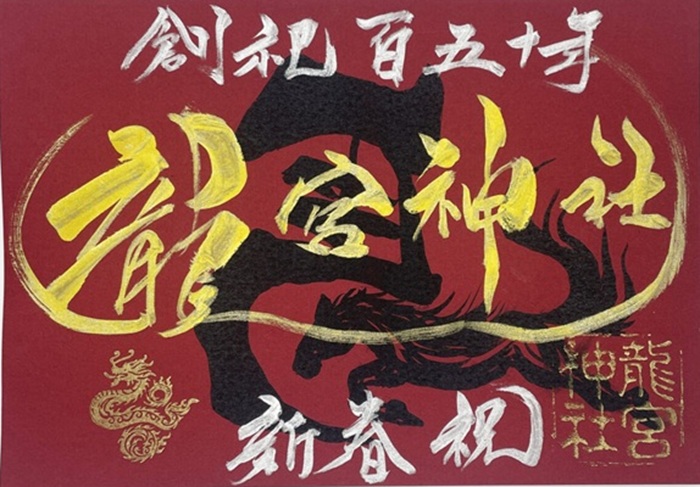 創祀百五十年
龍宮神社
新春祝
龍宮
神社